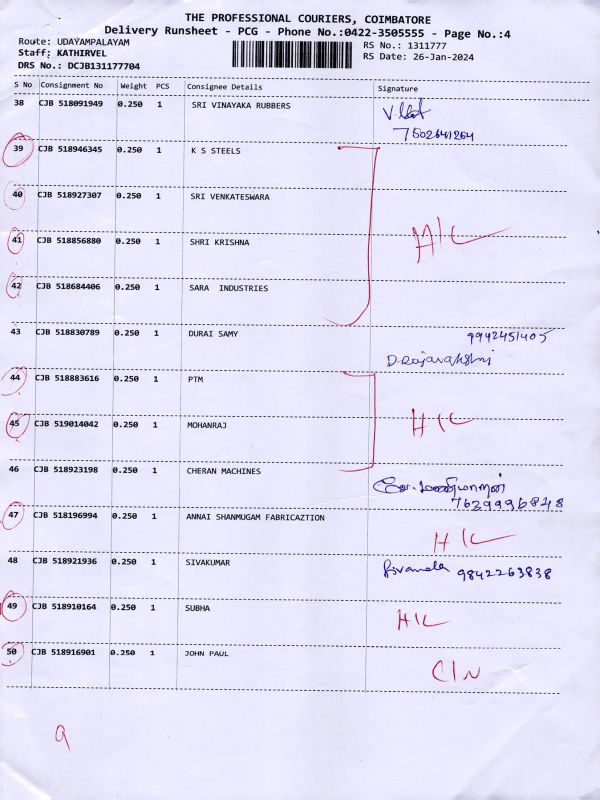 THE PROFESSIONAL COURIERS, COIMBATORE
Delivery Runsheet - PCG - Phone No.:0422-3505555 - Page No.:4
Route: UDAYAMPALAYAM
Staff: KATHIRVEL
DRS No.: DCJB131177704
RS No.: 1311777
RS Date: 26-Jan-2024
S No Consignment No Weight PCS Consignee Details Signature
38 CJB 518091949 0.250 1 SRI VINAYAKA RUBBERS
7502641264
39 CJB 518946345 0.250 1 K S STEELS
40 CJB 518927307 0.250 1 SRI VENKATESWARA
41 CJB 518856880 0.250 1 SHRI KRISHNA H/C
42 CJB 518684406 0.250 1 SARA INDUSTRIES
43 CJB 518830789 0.250 1 DURAI SAMY 9942451405
44 CJB 518883616 0.250 1 PTM
45 CJB 519014042 0.250 1 MOHANRAJ H/C
46 CJB 518923198 0.250 1 CHERAN MACHINES
7629996848
47 CJB 518196994 0.250 1 ANNAI SHANMUGAM FABRICAZTION H/C
48 CJB 518921936 0.250 1 SIVAKUMAR 9842263838
49 CJB 518910164 0.250 1 SUBHA H/C
50 CJB 518916901 0.250 1 JOHN PAUL C/N
9